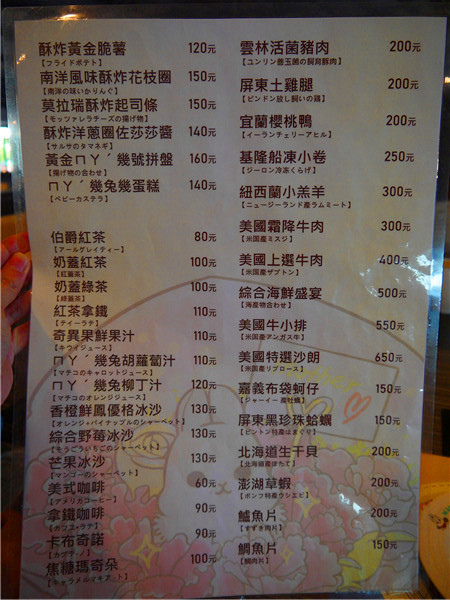 酥炸黃金脆薯 120元
【フライドポテト】
南洋風味酥炸花枝圈 150元
【南洋の味いかりんぐ】
莫拉瑞酥炸起司條 150元
【モッツァレラチーズの揚げ物】
酥炸洋蔥圈佐莎莎醬 140元
【サルサのタマネギ】
黃金ㄇㄚˊ幾號拼盤 160元
【揚げ物の合わせ】
ㄇㄚˊ幾兔幾蛋糕 140元
【ベビーカステラ】
伯爵紅茶 80元
【アールグレイティー】
奶蓋紅茶 100元
【紅蓋茶】
奶蓋綠茶 100元
【綠蓋茶】
紅茶拿鐵 110元
【ティーラテ】
奇異果鮮果汁 110元
【キウイジュース】
ㄇㄚˊ幾兔胡蘿蔔汁 110元
【マチコのキャロットジュース】
ㄇㄚˊ幾兔柳丁汁 120元
【マチコのオレンジジュース】
香橙鮮鳳優格冰沙 130元
【オレンジ+パイナップルのシャーベット】
綜合野莓冰沙 130元
【そうごういちごのシャーベット】
芒果冰沙 130元
【マンゴーのシャーベット】
美式咖啡 60元
【アメリカコーヒー】
拿鐵咖啡 90元
【カフェ・ラテ】
卡布奇諾 90元
【カプチーノ】
焦糖瑪奇朵 100元
【キャラメルマキアート】
雲林活菌豬肉 200元
屏東土雞腿 200元
【ピンドン放し飼いの鶏】
宜蘭櫻桃鴨 200元
【イーランチェリーアヒル】
基隆船凍小卷 250元
【ジーロン冷凍くらげ】
紐西蘭小羔羊 300元
【ニュージーランド産ラムミート】
美國霜降牛肉 300元
【米国産ミスジ】
美國上選牛肉 400元
【米国産ザブトン】
綜合海鮮盛宴 500元
【海産物合わせ】
美國牛小排 550元
【米国産アンガス牛】
美國特選沙朗 650元
【米国産リブロース】
嘉義布袋蚵仔 150元
【ジャーイー 産牡蠣】
屏東黑珍珠蛤蠣 150元
【ピントン特産はまぐり】
北海道生干貝 200元
【北海道産ほたて】
澎湖草蝦 200元
【ポンフ特産ウシエビ】
鱸魚片 200元
【すずき肉片】
鯛魚片 150元
【鯛肉片】